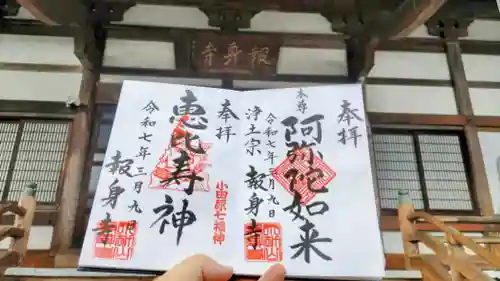 報身寺
奉拝
本尊
阿弥陀如来
令和七年三月九日
浄土宗 報身寺
奉拝
恵比寿神
小田原七福神
令和七年三月九日
報身寺